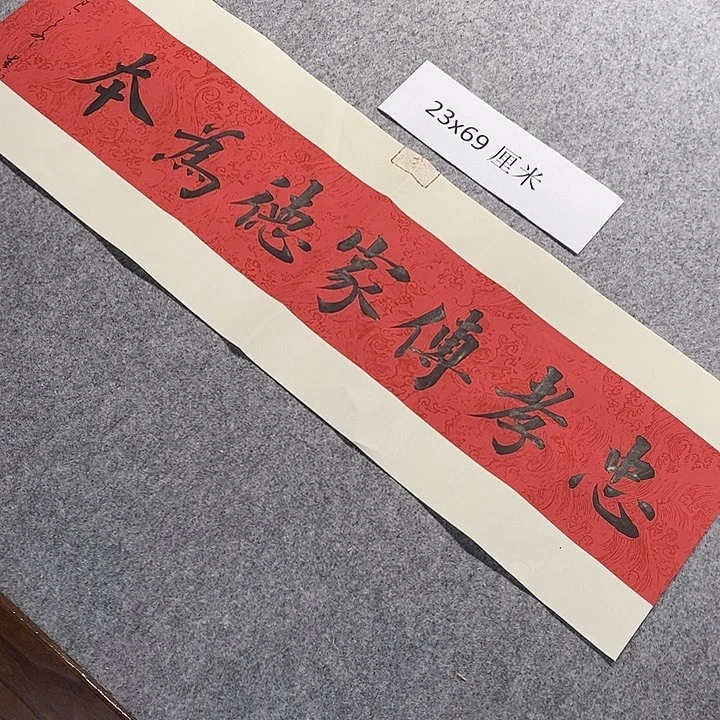 忠孝傳家德為本
23x69 厘米